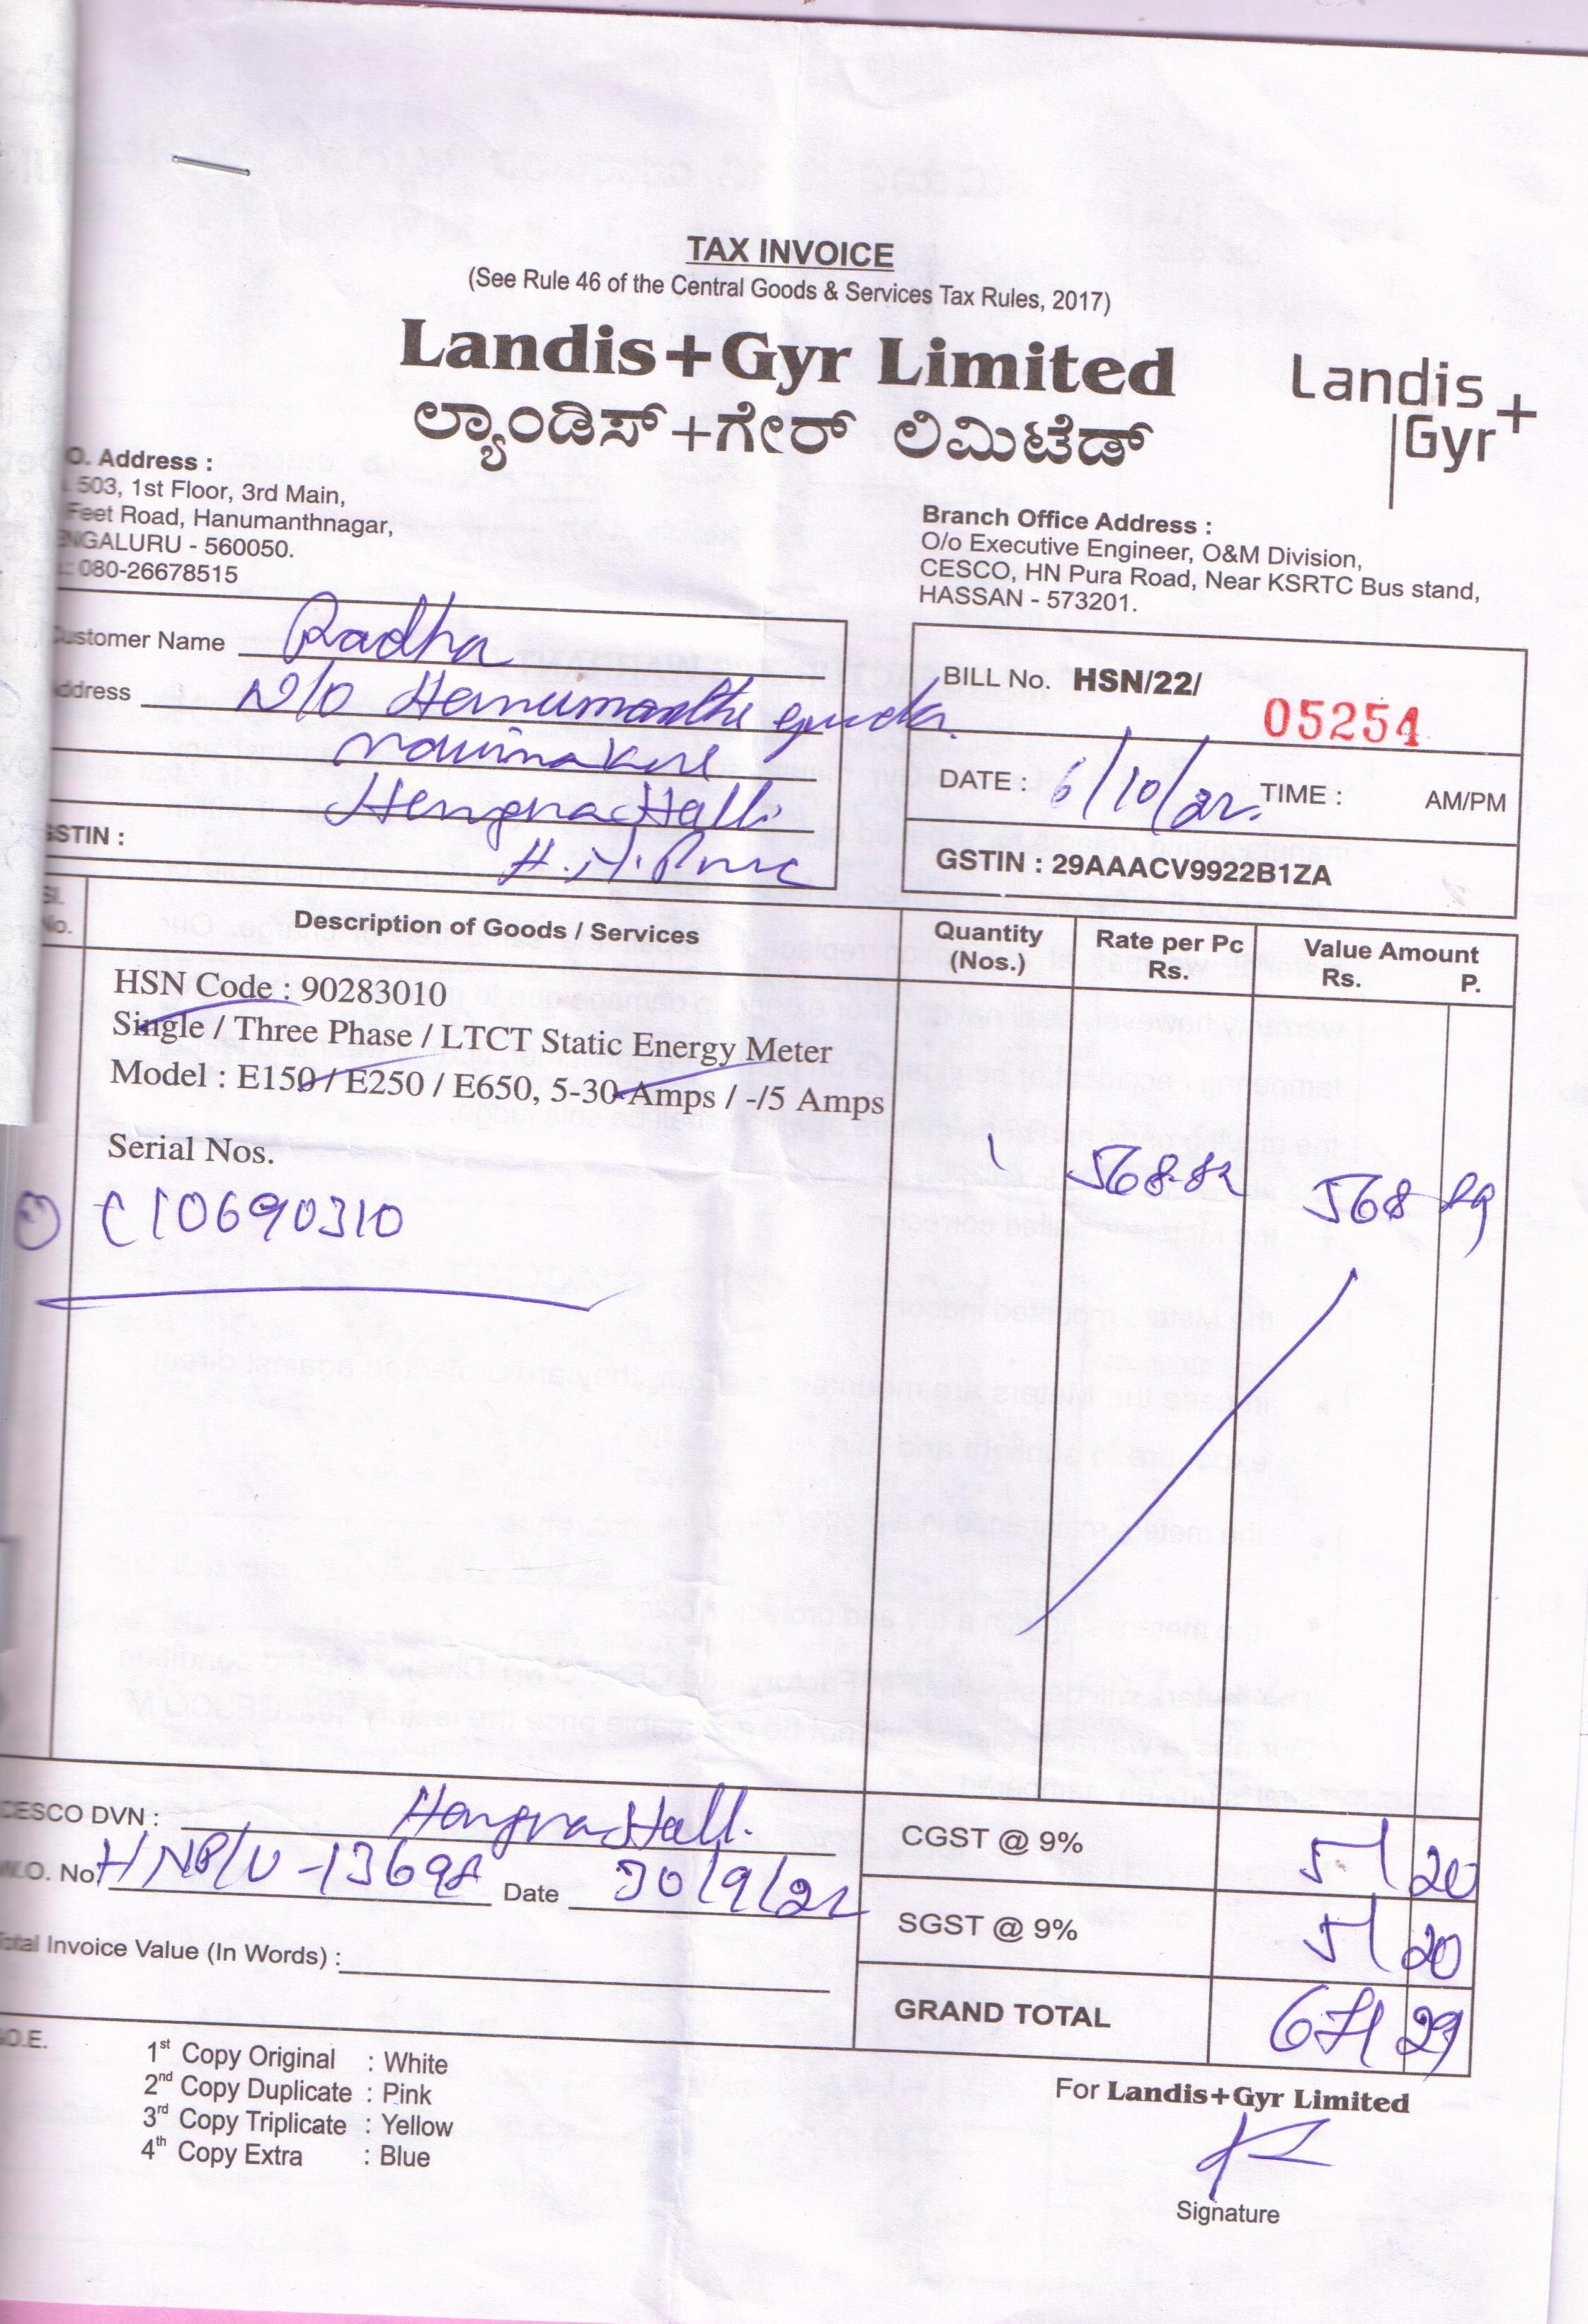 TAX INVOICE
(See Rule 46 of the Central Goods & Services Tax Rules, 2017)
Landis+Gyr Limited
ಲ್ಯಾಂಡಿಸ್+ಗೇರ್ ಲಿಮಿಟೆಡ್
Landis+
Gyr
O. Address :
503, 1st Floor, 3rd Main,
Feet Road, Hanumanthnagar,
NGALURU - 560050.
: 080-26678515
Branch Office Address :
O/o Executive Engineer, O&M Division,
CESCO, HN Pura Road, Near KSRTC Bus stand,
HASSAN - 573201.
ustomer Name Radha
ddress W/o
GSTIN :
BILL No. HSN/22/ 05254
DATE : 6/10/22. TIME : AM/PM
GSTIN : 29AAACV9922B1ZA
Sl. No. Description of Goods / Services Quantity (Nos.) Rate per Pc Rs. Value Amount Rs. P.
HSN Code : 90283010
Single / Three Phase / LTCT Static Energy Meter
Model : E150 / E250 / E650, 5-30 Amps / -/5 Amps
Serial Nos.
C10690310 1 568
CESCO DVN :
W.O. No. Date 30/9/22
CGST @ 9% 51 20
SGST @ 9% 51 20
Total Invoice Value (In Words) :
GRAND TOTAL 671 29
O.E.
1st Copy Original : White
2nd Copy Duplicate : Pink
3rd Copy Triplicate : Yellow
4th Copy Extra : Blue
For Landis+Gyr Limited
Signature